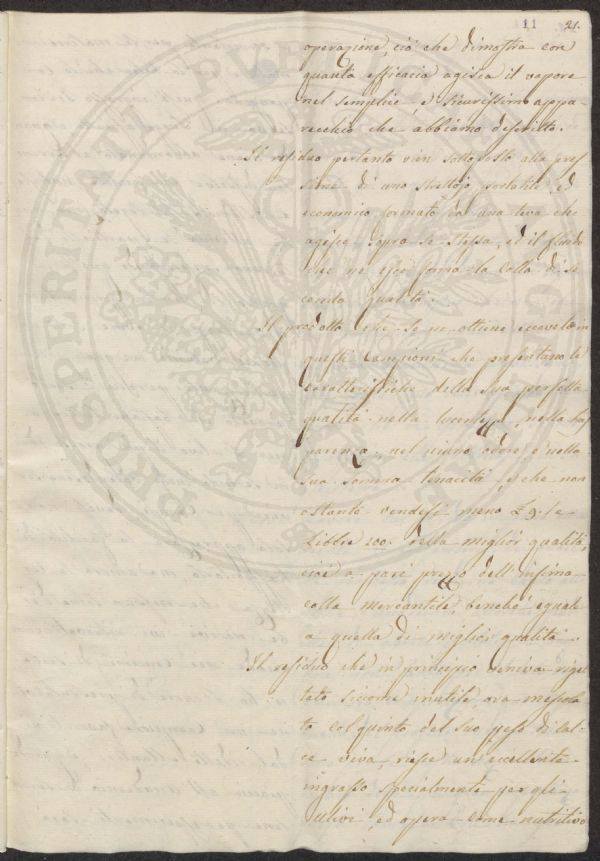 11 21.
operazione, ciò che dimostra con
quanta efficacia agisca il vapore
nel semplice, e sicurissimo appa-
recchio che abbiamo descritto.
Il residuo pertanto vien sottoposto alla pres-
sione di uno strettojo portatile, ed
economico formato da una leva che
agisce sopra se stessa, ed il fluido
che ne esce forma la colla di se-
conda qualità.
Il prodotto che se ne ottiene eccovelo in
questi campioni che presentano le
caratteristiche della sua perfetta
qualità nella lucentezza, nella tras
parenza, nel niuno odore e nella
sua somma tenacità, e che non
ostante vendesi meno £ 9. le
Libbre 100. della miglior qualità,
cioè a pari prezzo dell'infima
colla mercantile, benché eguale
a quella di miglior qualità.
Il residuo che in principio veniva riget-
tato siccome inutile, ora mescola-
to col quinto del suo peso di cal-
ce viva riesce un eccellente
ingrasso specialmente per gli
ulivi, ed opera come nutritivo
PROSPERITATI PUBLICAE